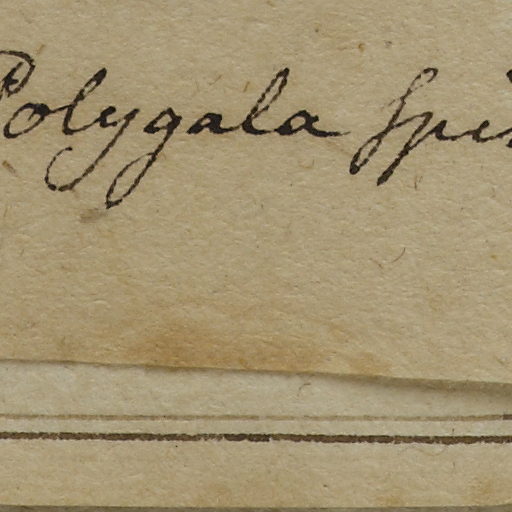 Polygala spi